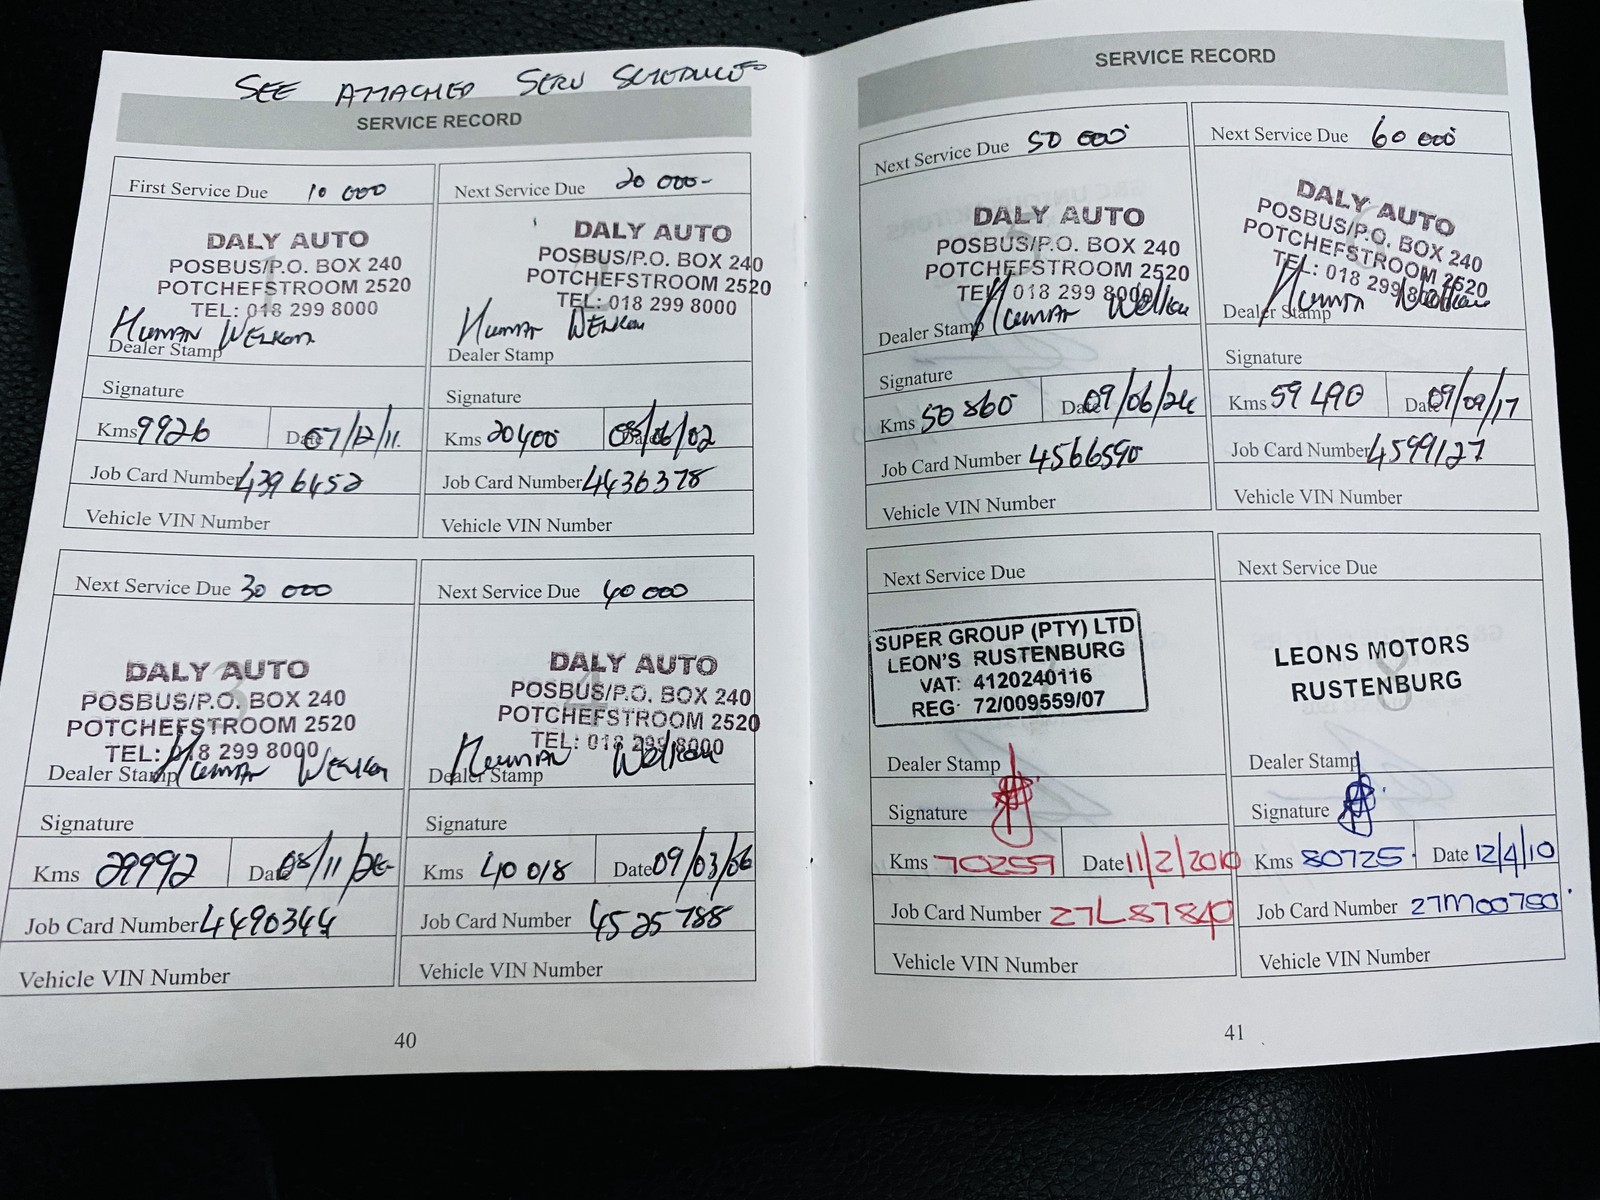 SEE ATTACHED SERV SCHEDULES
SERVICE RECORD
First Service Due 10 000
DALY AUTO
POSBUS/P.O. BOX 240
POTCHEFSTROOM 2520
TEL: 018 299 8000
HUMAN WELKOM
Dealer Stamp
Signature
Kms 9926 Date 07/12/11.
Job Card Number 4396452
Vehicle VIN Number
Next Service Due 20 000-
DALY AUTO
POSBUS/P.O. BOX 240
POTCHEFSTROOM 2520
TEL: 018 299 8000
HUMAN WELKOM
Dealer Stamp
Signature
Kms 20400 Date 08/06/02
Job Card Number 4436378
Vehicle VIN Number
Next Service Due 30 000
3
DALY AUTO
POSBUS/P.O. BOX 240
POTCHEFSTROOM 2520
TEL: 018 299 8000
HUMAN WELKOM
Dealer Stamp
Signature
Kms 29992 Date 08/11/
Job Card Number 4490344
Vehicle VIN Number
Next Service Due 40 000
4
DALY AUTO
POSBUS/P.O. BOX 240
POTCHEFSTROOM 2520
TEL: 018 299 8000
HUMAN Welkom
Dealer Stamp
Signature
Kms 40 018 Date 09/03/06
Job Card Number 4525788
Vehicle VIN Number
40
SERVICE RECORD
Next Service Due 50 000
DALY AUTO
POSBUS/P.O. BOX 240
POTCHEFSTROOM 2520
TEL: 018 299 8000
HUMAN Welkom
Dealer Stamp
Signature
Kms 50 860 Date 09/06/24
Job Card Number 4566590
Vehicle VIN Number
Next Service Due 60 000
DALY AUTO
POSBUS/P.O. BOX 240
POTCHEFSTROOM 2520
TEL: 018 299 8000
HUMAN Welkom
Dealer Stamp
Signature
Kms 59 490 Date 09/09/17
Job Card Number 4599127
Vehicle VIN Number
Next Service Due
SUPER GROUP (PTY) LTD
LEON'S RUSTENBURG
VAT: 4120240116
REG: 72/009559/07
Dealer Stamp
Signature
Kms 70259 Date 11/2/2010
Job Card Number 27L87840
Vehicle VIN Number
Next Service Due
LEONS MOTORS
RUSTENBURG
8
Dealer Stamp
Signature
Kms 80725 Date 12/4/10
Job Card Number 27M00780
Vehicle VIN Number
41